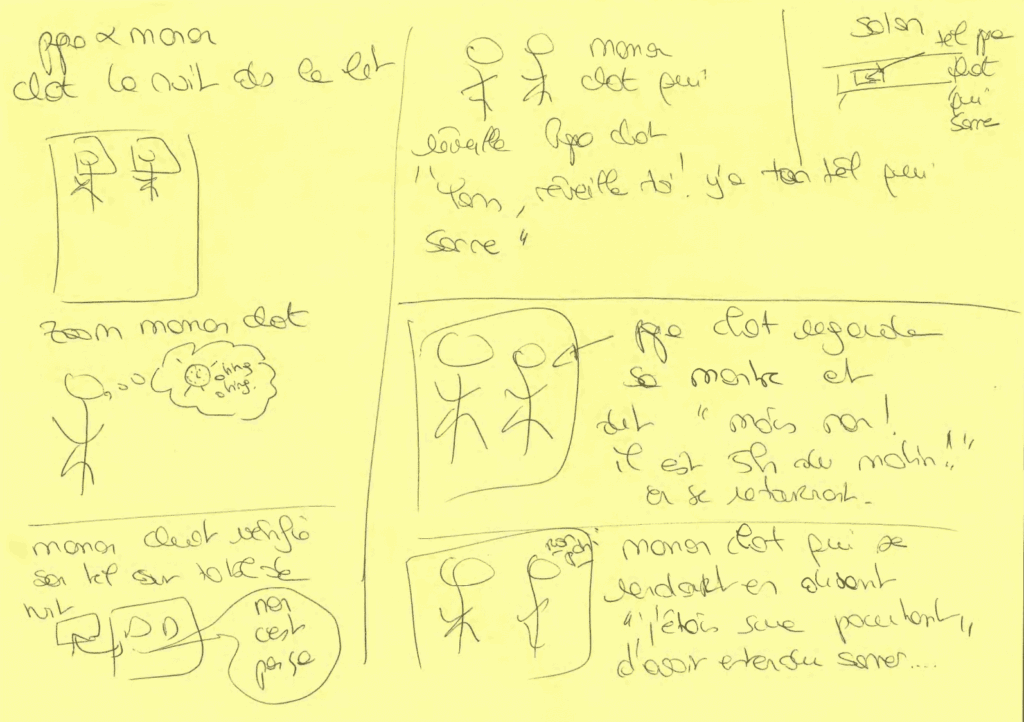 ppa & maman
chat la nuit ds le lit
zoom maman chat
dring
dring.
maman chat vérifie
son tel sur table de
nuit
non
c'est
pas ça
maman
chat qui
réveille papa chat
", réveille toi! y'a ton tél qui
sonne"
salon
tél ppa
chat
qui
sonne
ppa chat regarde
sa montre et
dit "mais non!
il est 5h du matin!!"
en se retournant.
maman chat qui se
rendort en disant
"j'étais sure pourtant"
d'avoir entendu sonner....